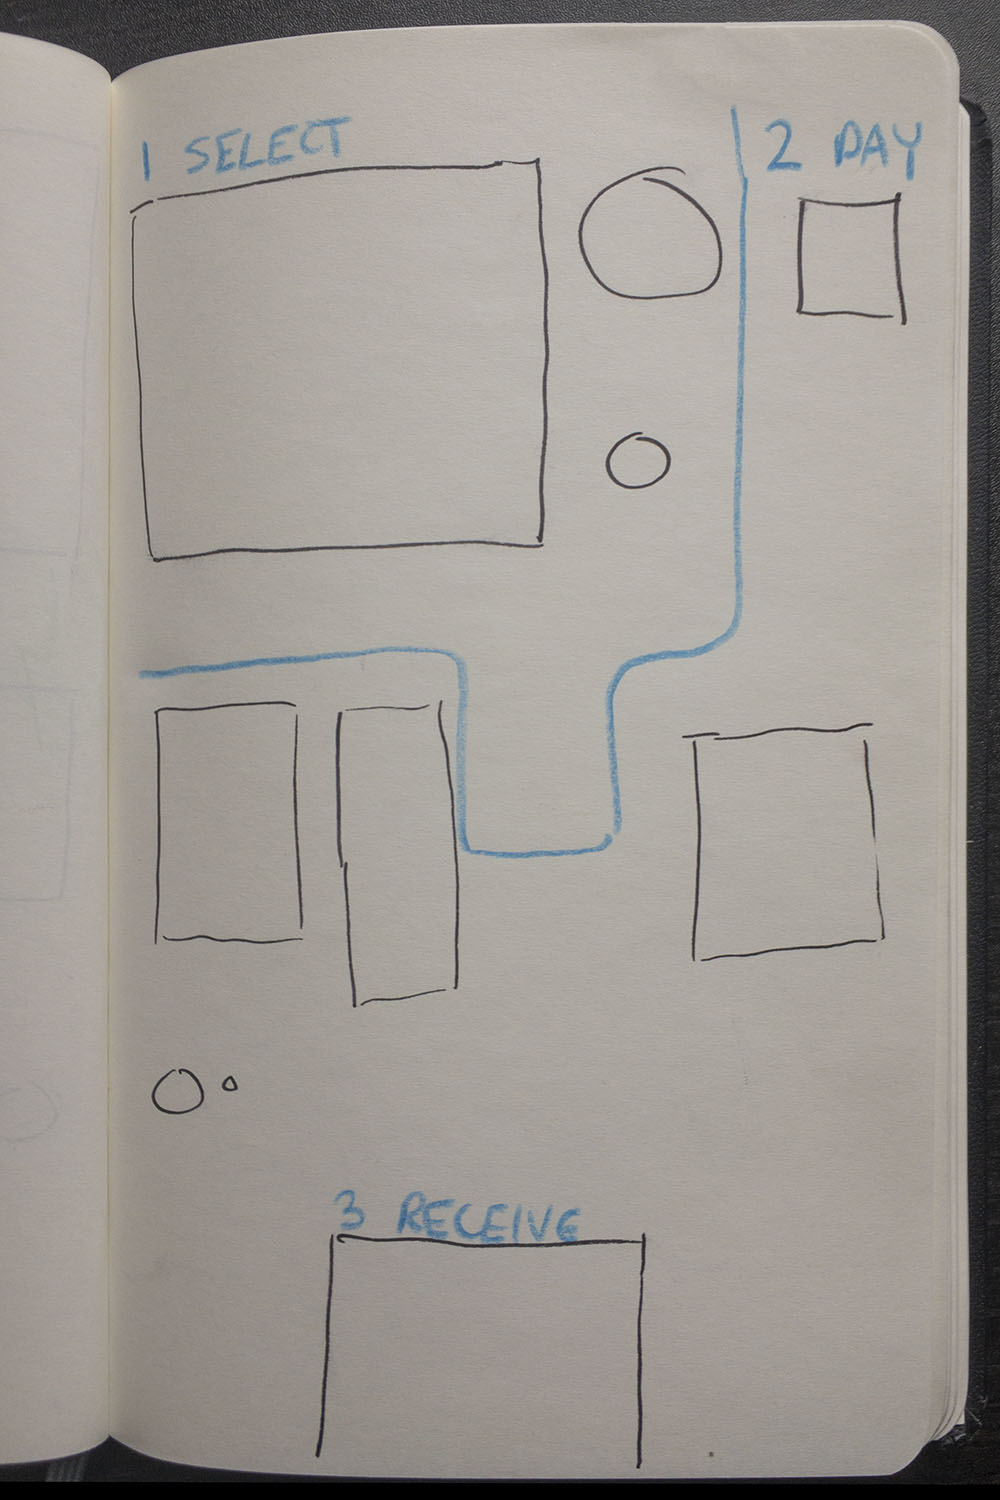 1 SELECT
2 PAY
3 RECEIVE